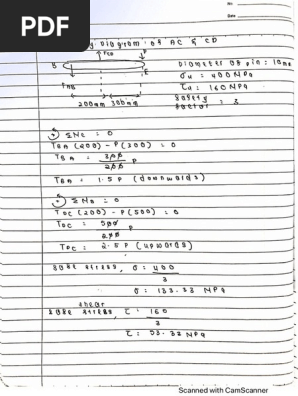 No:
Date
PDF
Diagram of AC & CD
B
P
E
200mm 300mm
Diameter of pin: 10mm
σu = 400MPa
τu = 160MPa
Safety factor = 3
ΣMc = 0
TBA (200) - P(300) = 0
TBA = 300/200 P
TBA = 1.5P (downwards)
ΣMB = 0
TDC (200) - P(500) = 0
TDC : 500/200 P
TDC : 2.5P (upwards)
stress, σ: 400/3
σ: 133.33 MPa
shear
stress, τ: 160/3
τ: 53.33 MPa
Scanned with CamScanner